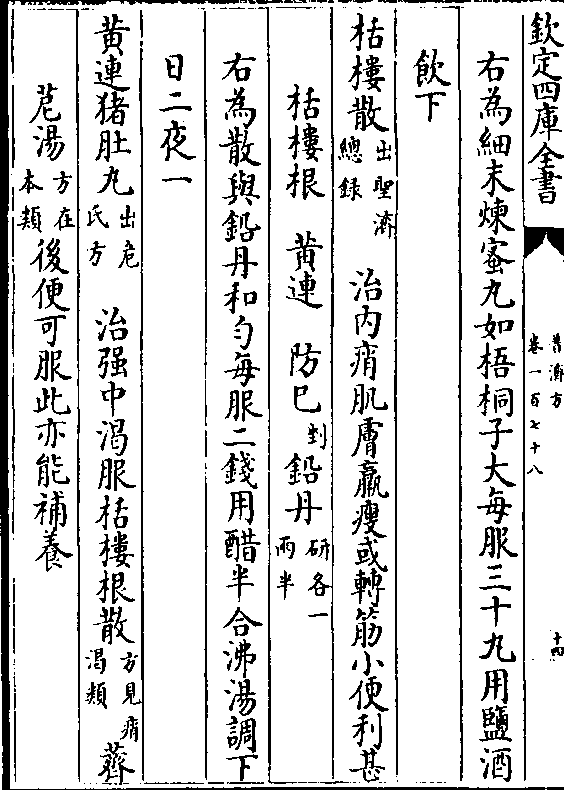 欽定四庫全書
普濟方
卷一百七十八
十四
右為細末煉蜜丸如梧桐子大每服三十丸用鹽酒
飲下
栝樓散出聖濟總録 治内痟肌膚羸瘦或轉筋小便利甚
栝樓根 黄連 防巳剉 鉛丹研各一兩半
右為散與鉛丹和勻每服二錢用醋半合沸湯調下
日二夜一
黄連猪肚丸出危氏方 治强中渴服栝樓根散方見痟渴類薺
苨湯方在本類後便可服此亦能補養